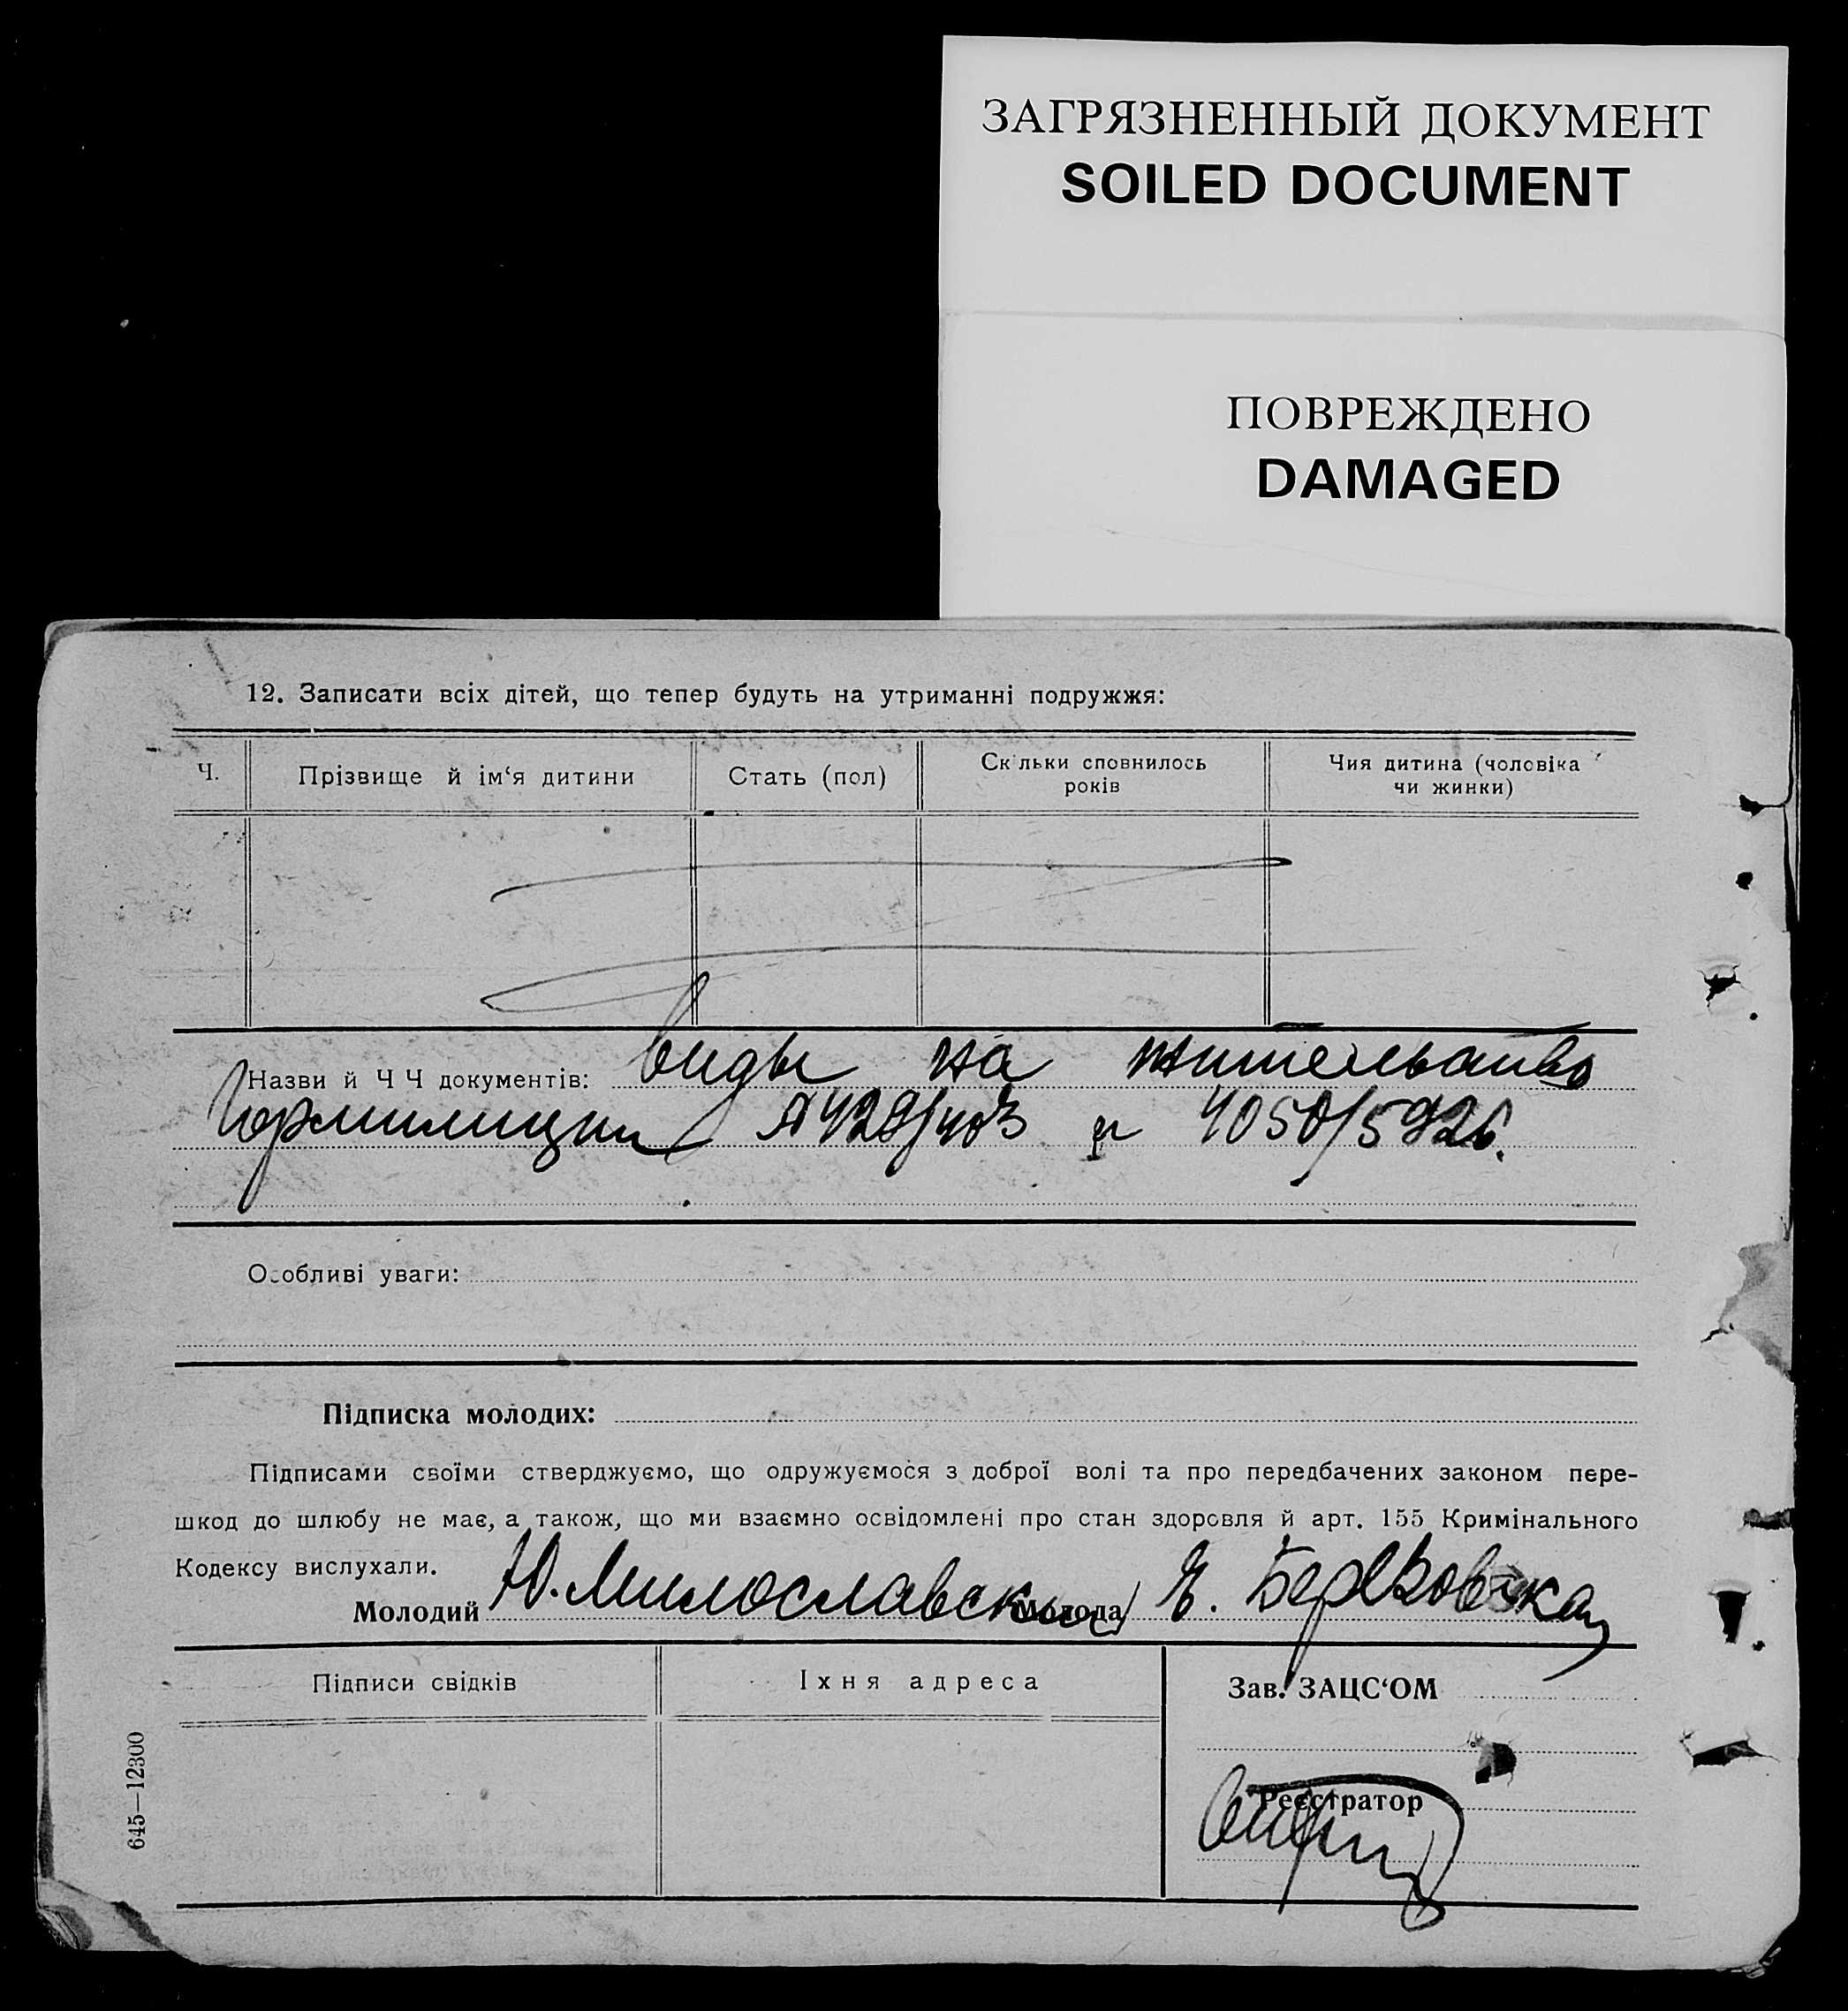 ЗАГРЯЗНЕННЫЙ ДОКУМЕНТ
SOILED DOCUMENT
ПОВРЕЖДЕНО
DAMAGED
12. Записати всіх дітей, що тепер будуть на утриманні подружжя:
Ч.
Прізвище й ім‘я дитини
Стать (пол)
Скільки сповнилось
років
Чия дитина (чоловіка
чи жинки)
Назви й Ч Ч документів: Виды на жительство
Гормилиции 428/403 и 4050/5926.
Особливі уваги:
Підписка молодих:
Підписами своїми стверджуємо, що одружуємося з доброї волі та про передбачених законом пере-
шкод до шлюбу не має, а також, що ми взаємно освідомлені про стан здоровля й арт. 155 Кримінального
Кодексу вислухали.
Молодий Ю. Милославский Молода Е. Берковская
Підписи свідків
Іхня адреса
Зав. ЗАЦС‘ОМ
Реєстратор
645—12300